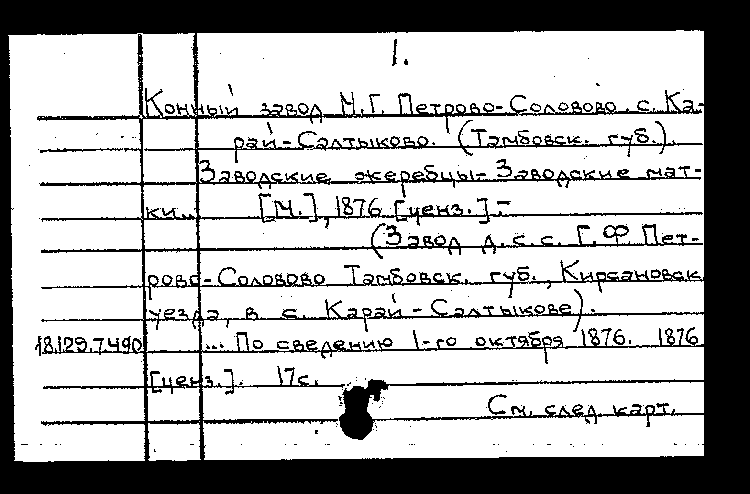 1.
Конный завод М.Г. Петрово-Соловово. с. Ка-
рай-Салтыково. (Тамбовск. губ.).
Заводские жеребцы- Заводские мат-
ки... [М.], 1876 [ценз.].-
(Завод д.с.с. Г.Ф Пет-
рово-Соловово Тамбовск. губ., Кирсановск
уезда, в с. Карай-Салтыкове).
18.129.7.490 ... По сведению 1-го октября 1876. 1876
[ценз.]. 17с.
См. след. карт.